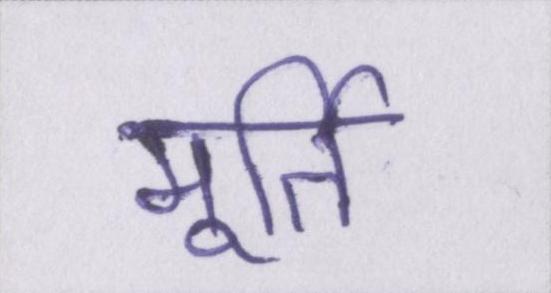 मूर्ति